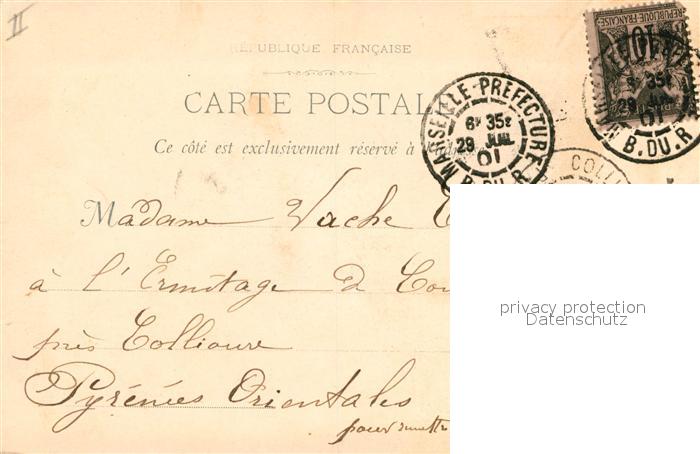 II
RÉPUBLIQUE FRANÇAISE
CARTE POSTALE
Ce côté est exclusivement réservé à
MARSEILLE-PREFECTURE
6E 35S
29 JUIL
01
B.DU.R
REPUBLIQUE FRANÇAISE
10
35E
29
01
B.DU.R
COLLI
Madame Vache
à l'Ermitage d
près Collioure
Pyrénées Orientales
privacy protection
Datenschutz